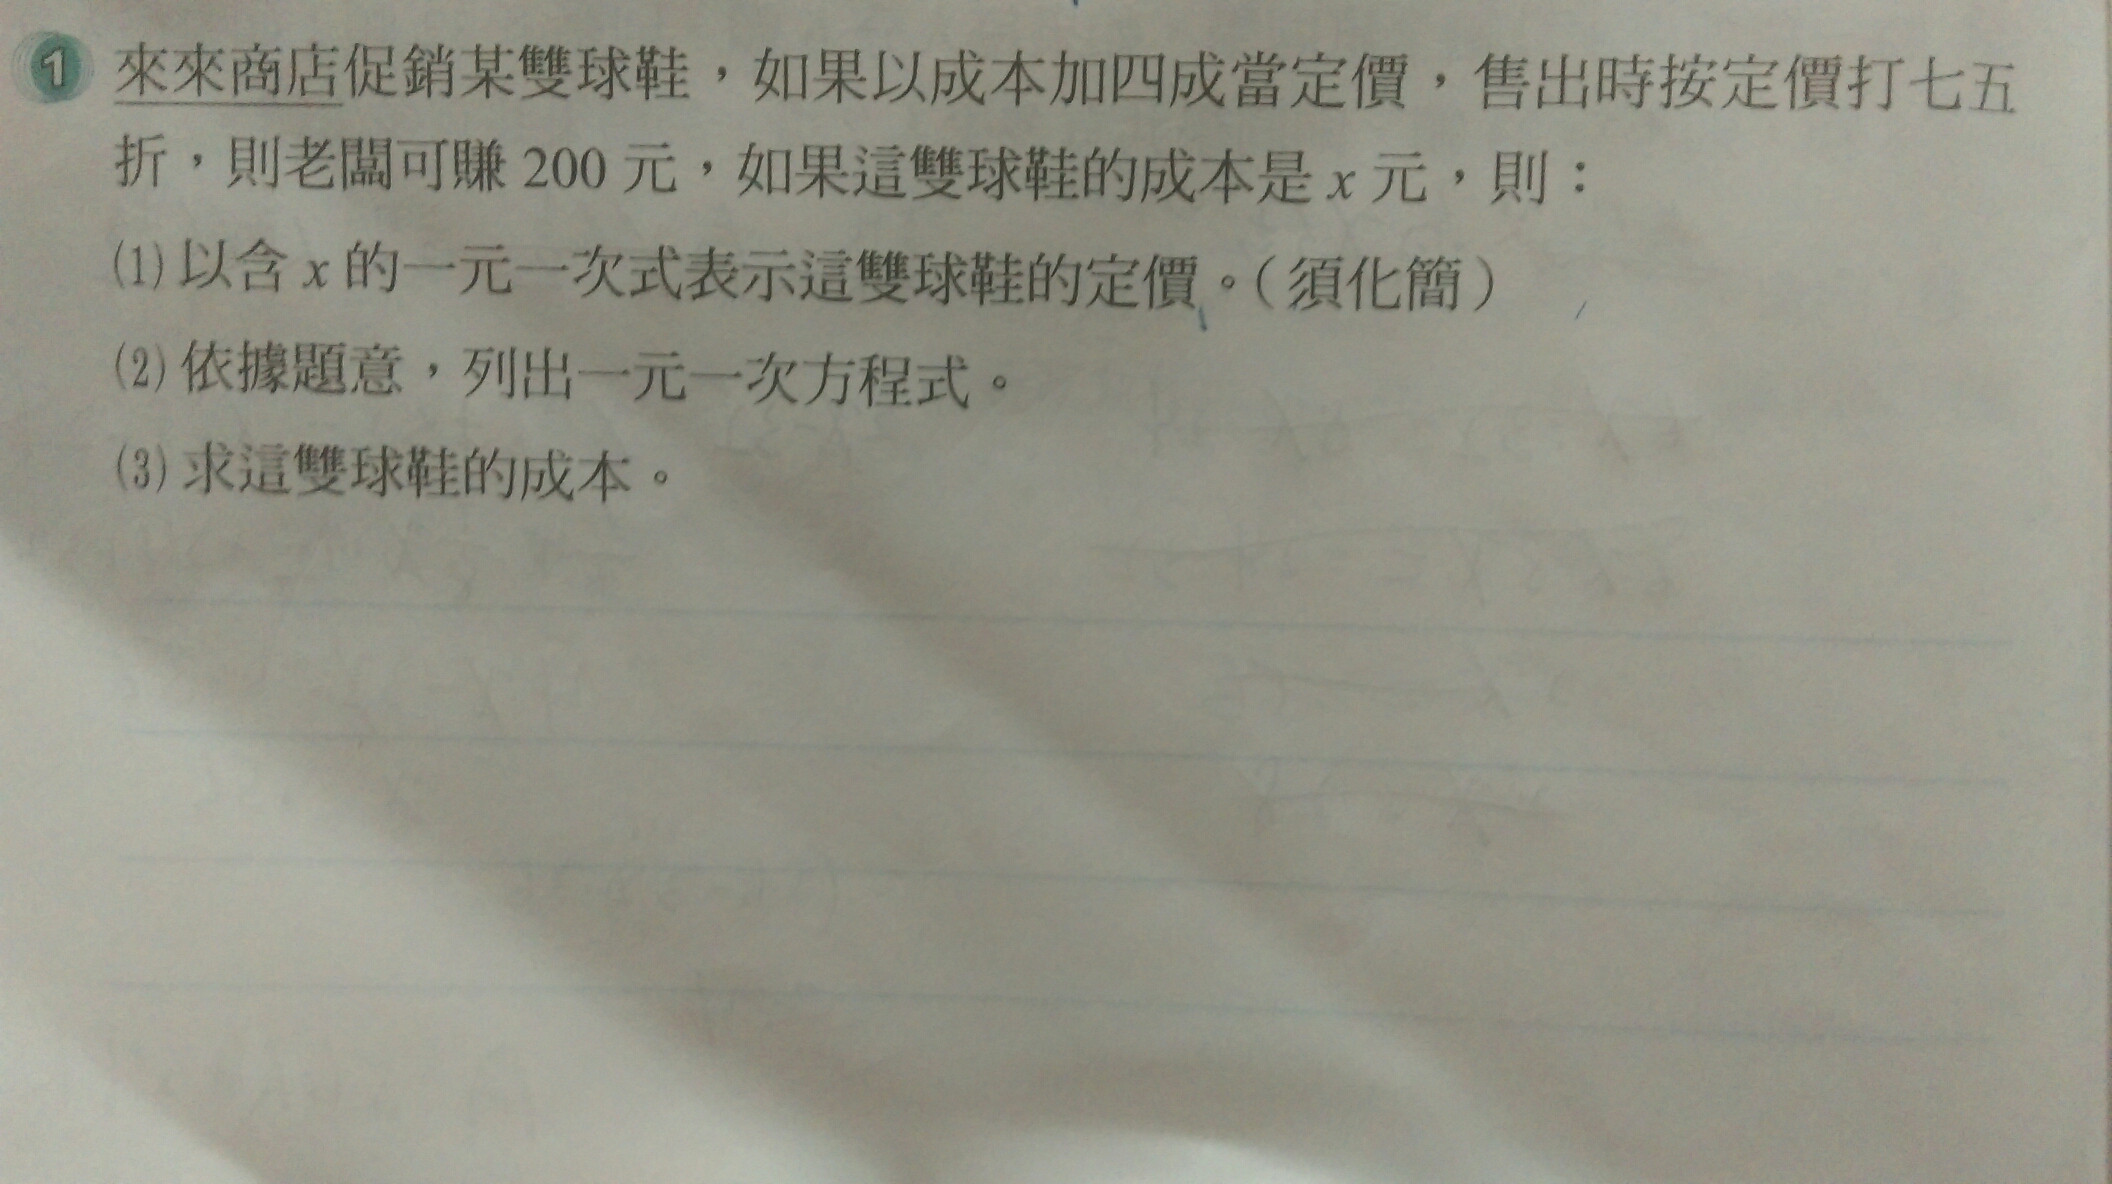 1 來來商店促銷某雙球鞋，如果以成本加四成當定價，售出時按定價打七五
折，則老闆可賺 200 元，如果這雙球鞋的成本是 x 元，則：
(1) 以含 x 的一元一次式表示這雙球鞋的定價。（須化簡）
(2) 依據題意，列出一元一次方程式。
(3) 求這雙球鞋的成本。